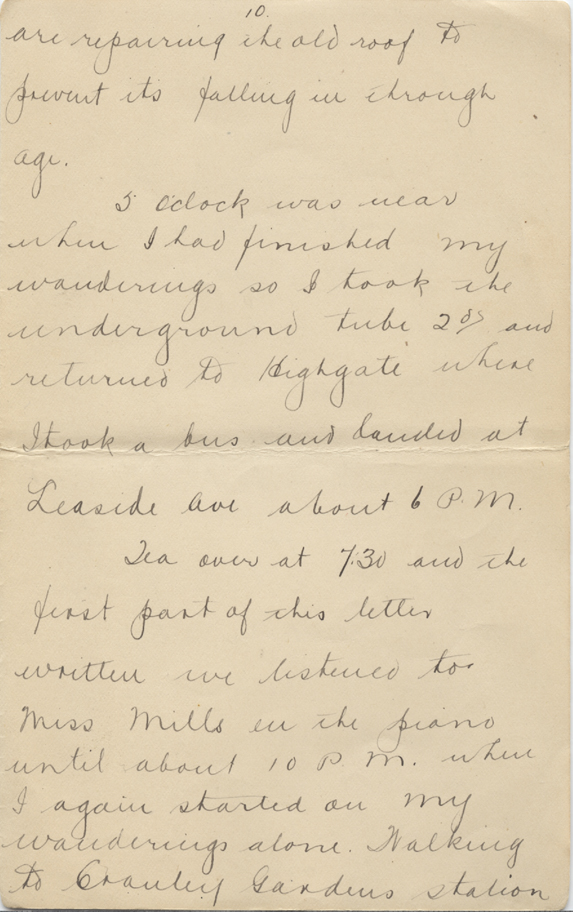 10.
are repairing the old roof to
prevent its falling in through
age.
5 oclock was near
when I had finished my
wanderings so I took the
underground tube 2ds and
returned to Highgate where
I took a bus and landed at
Leaside Ave about 6 P.M.
Tea over at 7:30 and the
first part of this letter
written we listened to
Miss Mills on the piano
until about 10 P.M. when
I again started on my
wanderings alone. Walking
to Cranley Gardens station